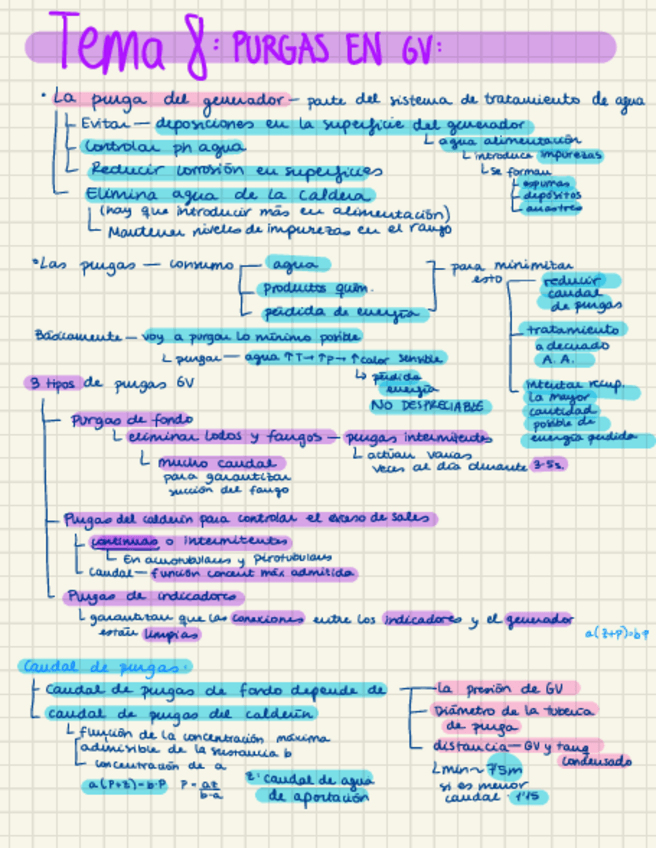 Tema 8: PURGAS EN GV:
· La purga del generador — parte del sistema de tratamiento de agua
Evitar — deposiciones en la superficie del generador
agua alimentación
introduce impurezas
se forman
espumas
depósitos
arrastres
Controlar ph agua
Reducir corrosión en superficies
Elimina agua de la caldera
(hay que introducir más en alimentación)
Mantener niveles de impurezas en el rango
· Las purgas — consumo
agua
productos quím.
pérdida de energía
para minimizar
esto
reducir
caudal
de purgas
tratamiento
adecuado
A. A.
intentar recup.
la mayor
cantidad
posible de
energía perdida
Básicamente — voy a purgar lo mínimo posible
purgar — agua ↑T → ↑P → ↑calor sensible
↳ pérdida
energía
NO DESPRECIABLE
3 tipos de purgas GV
Purgas de fondo
eliminar lodos y fangos — purgas intermitentes
actúan varias
veces al día durante 3-5s.
mucho caudal
para garantizar
succión del fango
Purgas del calderín para controlar el exceso de sales
continuas o intermitentes
En acuotubulares y pirotubulares
Caudal — función concent máx admitida
Purgas de indicadores
garantizan que las conexiones entre los indicadores y el generador
están limpias
a(z+P)=b·P
Caudal de purgas:
caudal de purgas de fondo depende de
La presión de GV
Diámetro de la tubería
de purga
distancia — GV y tanq
condensado
Lmin ~ 75m
si es menor
caudal · 1'15
caudal de purgas del calderín
función de la concentración máxima
admisible de la sustancia b
concentración de a
a(P+z)=b·P
P = az/b-a
z: caudal de agua
de aportación